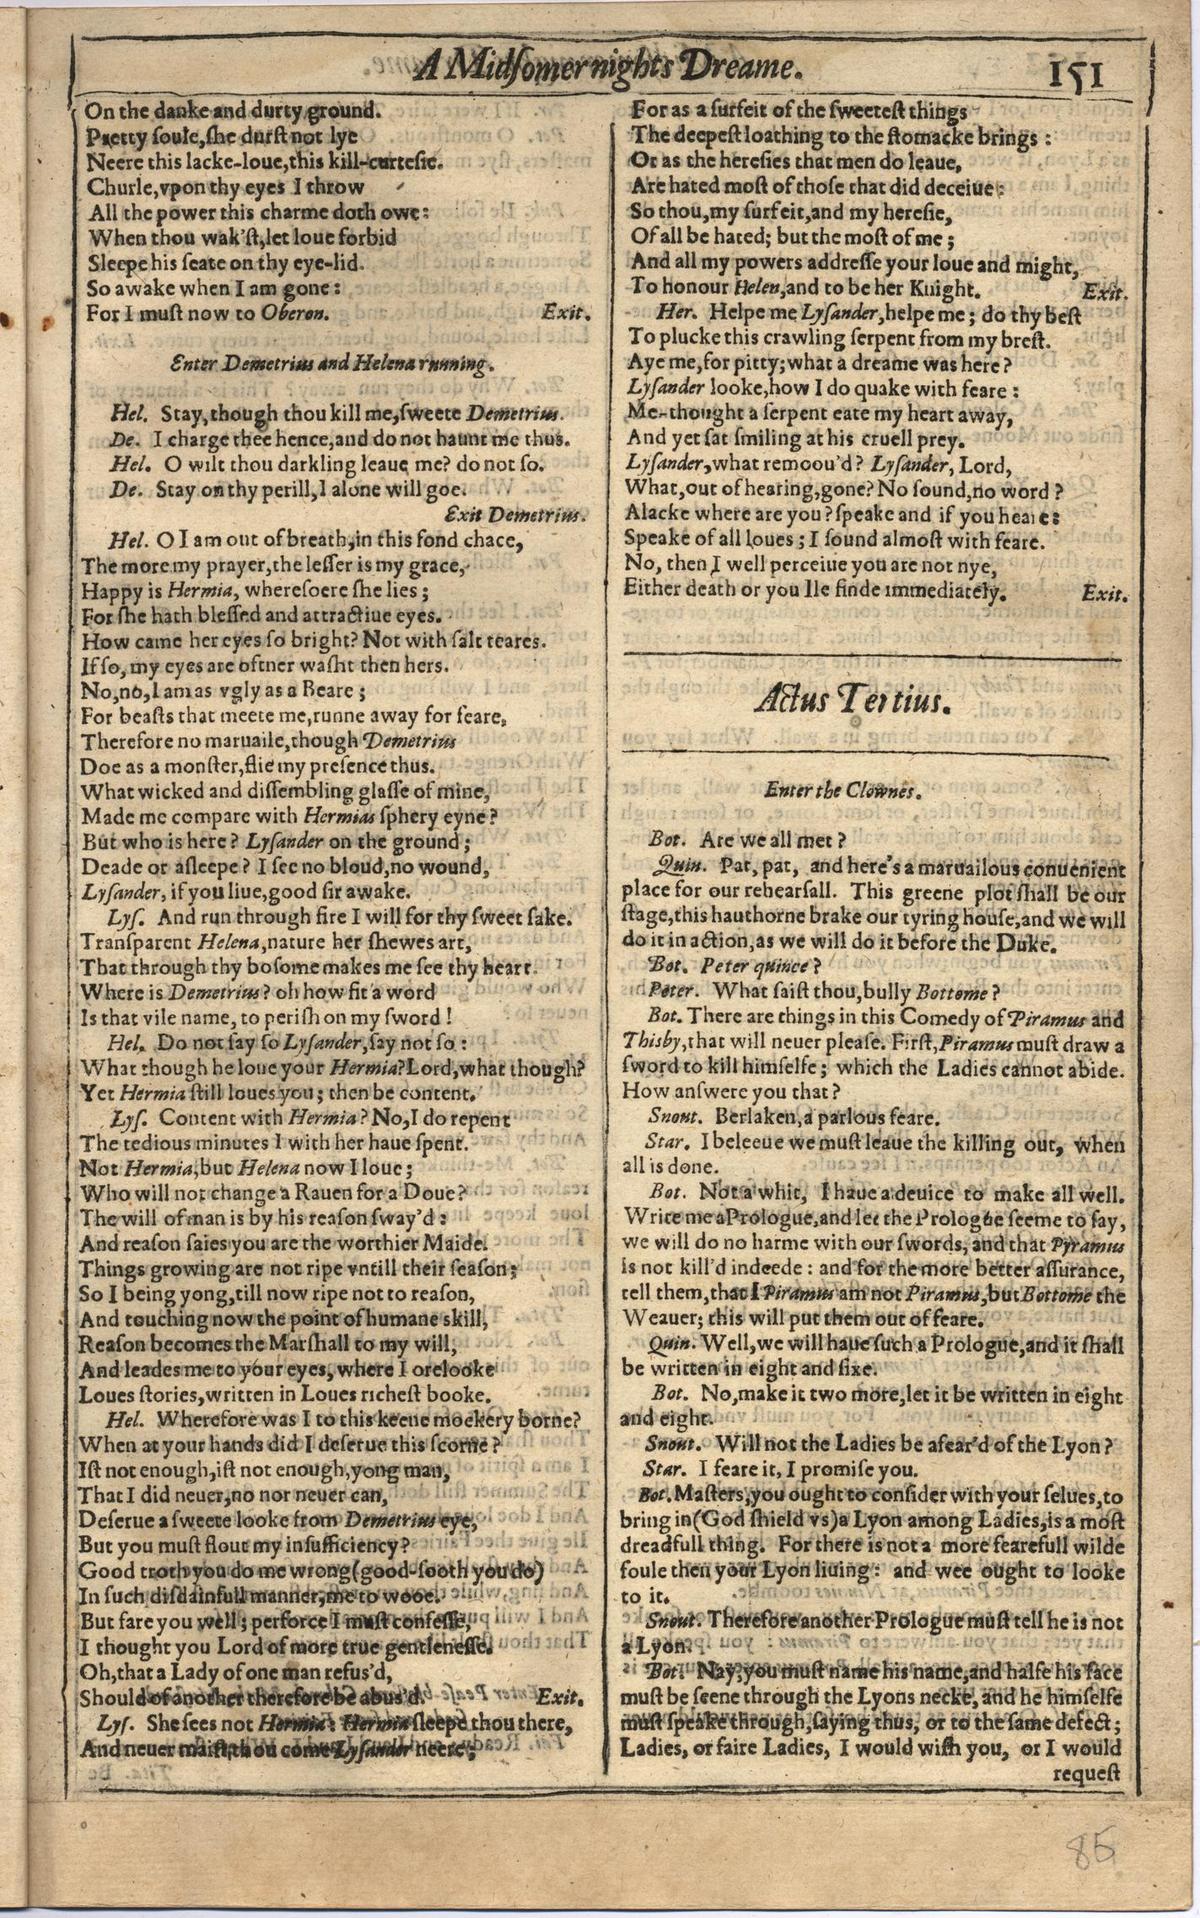 A Midsomer nights Dreame.
151
On the danke and durty ground.
Pretty soule, she durst not lye
Neere this lacke-loue, this kill-curtesie.
Churle, vpon thy eyes I throw
All the power this charme doth owe:
When thou wak'st, let loue forbid
Sleepe his seate on thy eye-lid.
So awake when I am gone:
For I must now to Oberon. Exit.
Enter Demetrius and Helena running.
Hel. Stay, though thou kill me, sweete Demetrius.
De. I charge thee hence, and do not haunt me thus.
Hel. O wilt thou darkling leaue me? do not so.
De. Stay on thy perill, I alone will goe.
Exit Demetrius.
Hel. O I am out of breath, in this fond chace,
The more my prayer, the lesser is my grace,
Happy is Hermia, wheresoere she lies;
For she hath blessed and attractiue eyes.
How came her eyes so bright? Not with salt teares.
If so, my eyes are oftner washt then hers.
No, no, I am as vgly as a Beare;
For beasts that meete me, runne away for feare,
Therefore no maruaile, though Demetrius
Doe as a monster, flie my presence thus.
What wicked and dissembling glasse of mine,
Made me compare with Hermias sphery eyne?
But who is here? Lysander on the ground;
Deade or asleepe? I see no bloud, no wound,
Lysander, if you liue, good sir awake.
Lys. And run through fire I will for thy sweet sake.
Transparent Helena, nature her shewes art,
That through thy bosome makes me see thy heart.
Where is Demetrius? oh how fit a word
Is that vile name, to perish on my sword!
Hel. Do not say so Lysander, say not so:
What though he loue your Hermia? Lord, what though?
Yet Hermia still loues you; then be content.
Lys. Content with Hermia? No, I do repent
The tedious minutes I with her haue spent.
Not Hermia, but Helena now I loue;
Who will not change a Rauen for a Doue?
The will of man is by his reason sway'd:
And reason saies you are the worthier Maide.
Things growing are not ripe vntill their season;
So I being yong, till now ripe not to reason,
And touching now the point of humane skill,
Reason becomes the Marshall to my will,
And leades me to your eyes, where I orelooke
Loues stories, written in Loues richest booke.
Hel. Wherefore was I to this keene mockery borne?
When at your hands did I deserue this scorne?
Ist not enough, ist not enough, yong man,
That I did neuer, no nor neuer can,
Deserue a sweete looke from Demetrius eye,
But you must flout my insufficiency?
Good troth you do me wrong (good-sooth you do)
In such disdainfull manner, me to wooe.
But fare you well; perforce I must confesse,
I thought you Lord of more true gentlenesse.
Oh, that a Lady of one man refus'd,
Should of another therefore be abus'd. Exit.
Lys. She sees not Hermia: Hermia sleepe thou there,
And neuer maist thou come Lysander neere;
For as a surfeit of the sweetest things
The deepest loathing to the stomacke brings:
Or as the heresies that men do leaue,
Are hated most of those that did deceiue:
So thou, my surfeit, and my heresie,
Of all be hated; but the most of me;
And all my powers addresse your loue and might,
To honour Helen, and to be her Knight. Exit.
Her. Helpe me Lysander, helpe me; do thy best
To plucke this crawling serpent from my brest.
Aye me, for pitty; what a dreame was here?
Lysander looke, how I do quake with feare:
Me-thought a serpent eate my heart away,
And yet sat smiling at his cruell prey.
Lysander, what remoou'd? Lysander, Lord,
What, out of hearing, gone? No sound, no word?
Alacke where are you? speake and if you heare:
Speake of all loues; I sound almost with feare.
No, then I well perceiue you are not nye,
Either death or you Ile finde immediately. Exit.
Actus Tertius.
Enter the Clownes.
Bot. Are we all met?
Quin. Pat, pat, and here's a maruailous conuenient
place for our rehearsall. This greene plot shall be our
stage, this hauthorne brake our tyring house, and we will
do it in action, as we will do it before the Duke.
Bot. Peter quince?
Peter. What saist thou, bully Bottome?
Bot. There are things in this Comedy of Piramus and
Thisby, that will neuer please. First, Piramus must draw a
sword to kill himselfe; which the Ladies cannot abide.
How answere you that?
Snout. Berlaken, a parlous feare.
Star. I beleeue we must leaue the killing out, when
all is done.
Bot. Not a whit, I haue a deuice to make all well.
Write me a Prologue, and let the Prologue seeme to say,
we will do no harme with our swords, and that Pyramus
is not kill'd indeede: and for the more better assurance,
tell them, that I Piramus am not Piramus, but Bottome the
Weauer; this will put them out of feare.
Quin. Well, we will haue such a Prologue, and it shall
be written in eight and sixe.
Bot. No, make it two more, let it be written in eight
and eight.
Snout. Will not the Ladies be afear'd of the Lyon?
Star. I feare it, I promise you.
Bot. Masters, you ought to consider with your selues, to
bring in (God shield vs) a Lyon among Ladies, is a most
dreadfull thing. For there is not a more fearefull wilde
foule then your Lyon liuing: and wee ought to looke
to it.
Snout. Therefore another Prologue must tell he is not
a Lyon.
Bot. Nay, you must name his name, and halfe his face
must be seene through the Lyons necke, and he himselfe
must speake through, saying thus, or to the same defect;
Ladies, or faire Ladies, I would wish you, or I would
request
85